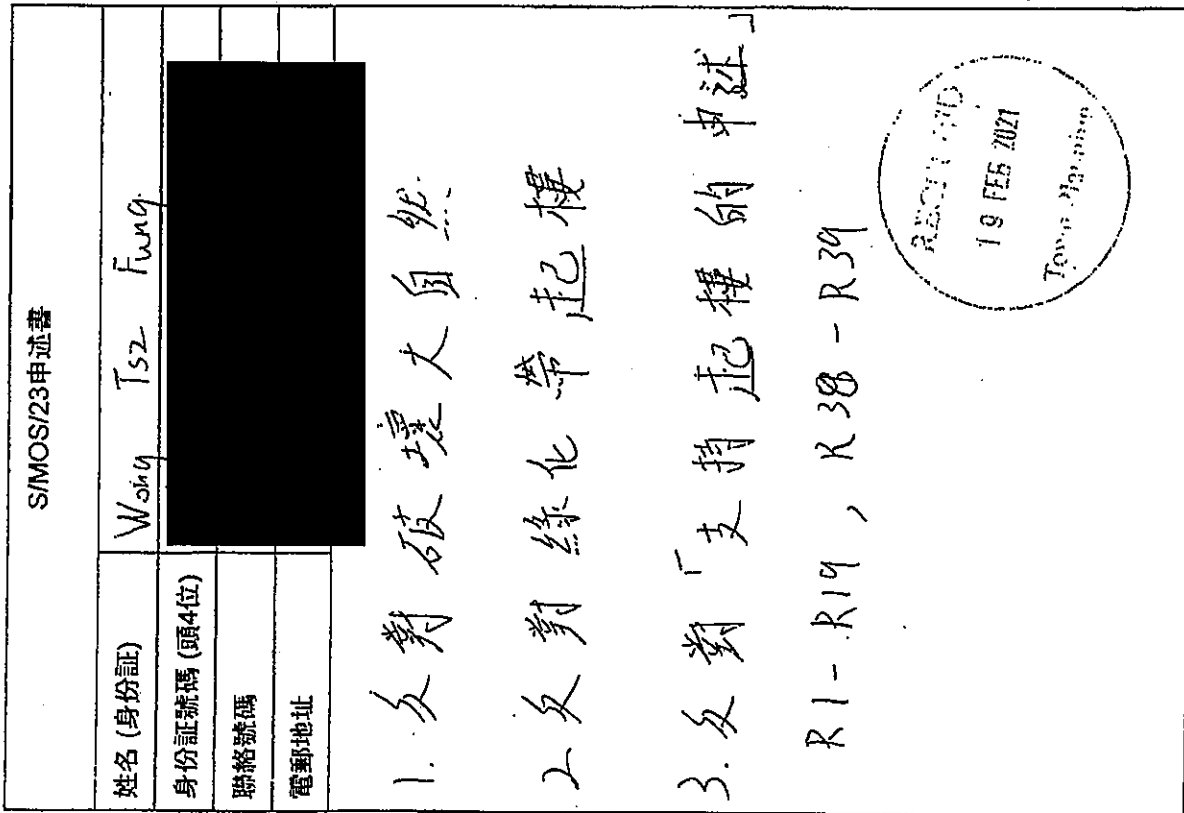 S/MOS/23申述書
姓名 (身份証) Wong Tsz Fung
身份証號碼 (頭4位)
聯絡號碼
電郵地址
1. 反對破壞大自然
2 反對綠化帶起樓
3. 反對「支持起樓的申述」
R1-R19, R38-R39
RECEIVED
19 FEB 2021
Town Planning